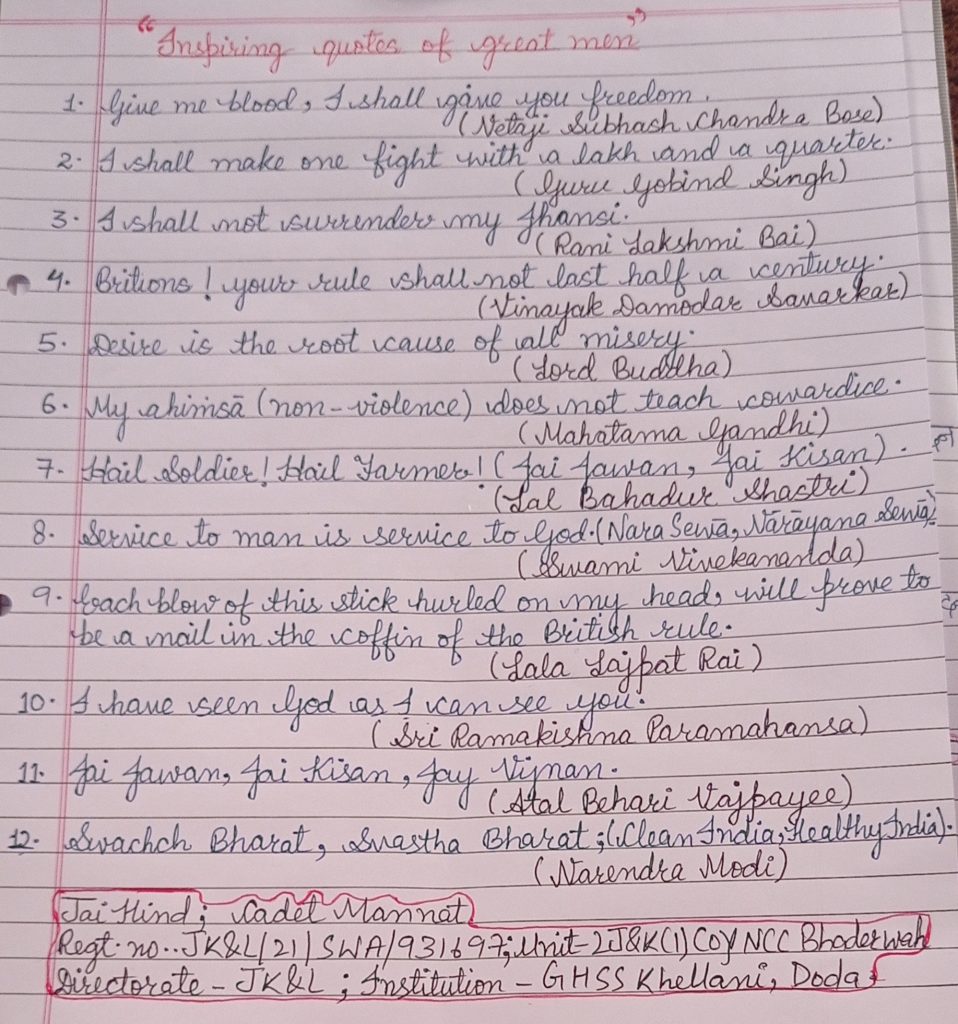 "Inspiring quotes of great men"
1. Give me blood, I shall give you freedom.
(Netaji Subhash Chandra Bose)
2. I shall make one fight with a lakh and a quarter.
(Guru Gobind Singh)
3. I shall not surrender my Jhansi.
(Rani Lakshmi Bai)
4. Britions! your rule shall not last half a century.
(Vinayak Damodar Savarkar)
5. Desire is the root cause of all misery.
(Lord Buddha)
6. My ahimsā (non-violence) does not teach cowardice.
(Mahatama Gandhi)
7. Hail Soldier! Hail Farmer! (Jai Jawan, Jai Kisan).
(Lal Bahadur Shastri)
8. Service to man is service to God. (Nara Sewā, Nārāyana Sewā)
(Swami Vivekananda)
9. Each blow of this stick hurled on my head, will prove to
be a nail in the coffin of the British rule.
(Lala Lajpat Rai)
10. I have seen God as I can see you.
(Sri Ramakishna Paramahansa)
11. Jai Jawan, Jai Kisan, Jay Vijnan.
(Atal Behari Vajpayee)
12. Swachch Bharat, Svastha Bharat; (Clean India, Healthy India).
(Narendra Modi)
Jai Hind; Cadet Mannat
Regt. no.. JK&L/21/SWA/931697; Unit-2J&K(1) COY NCC Bhoderwah
Directorate - JK&L; Institution - GHSS Khellani, Doda